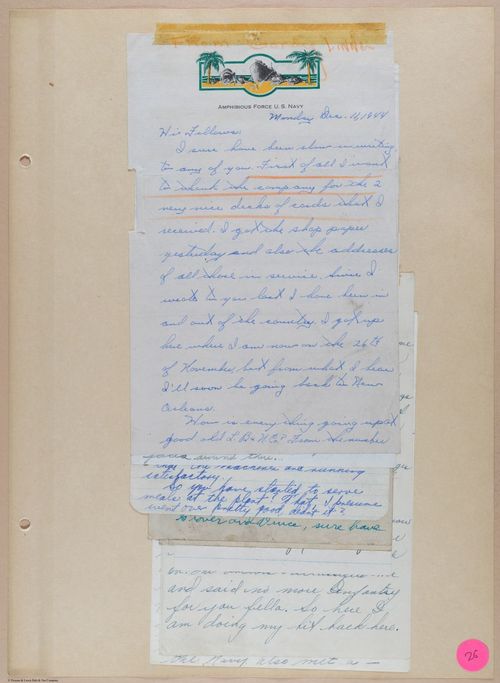 DINNER
AMPHIBIOUS FORCE U.S. NAVY
Monday Dec. 11, 1944
Hi Fellows:
I sure have been slow in writing
to any of you. First of all I want
to thank the company for the 2
very nice decks of cards that I
received. I got the shop paper
yesterday and also the addresses
of all those in service. Since I
wrote to you last I have been in
and out of the country. I got up
here where I am now on the 26th
of November, but from what I hear
I'll soon be going back to New
Orleans.
How is every thing going up at
good old From the number
the machines are running
satisfactory.
So you have started to serve
meals at the plant! That, I presume
went over pretty good, didn't it?
Grover and Vince, sure have
and said no more Infantry
for you fella. So here I
am doing my bit back here.
the Navy also met a
26